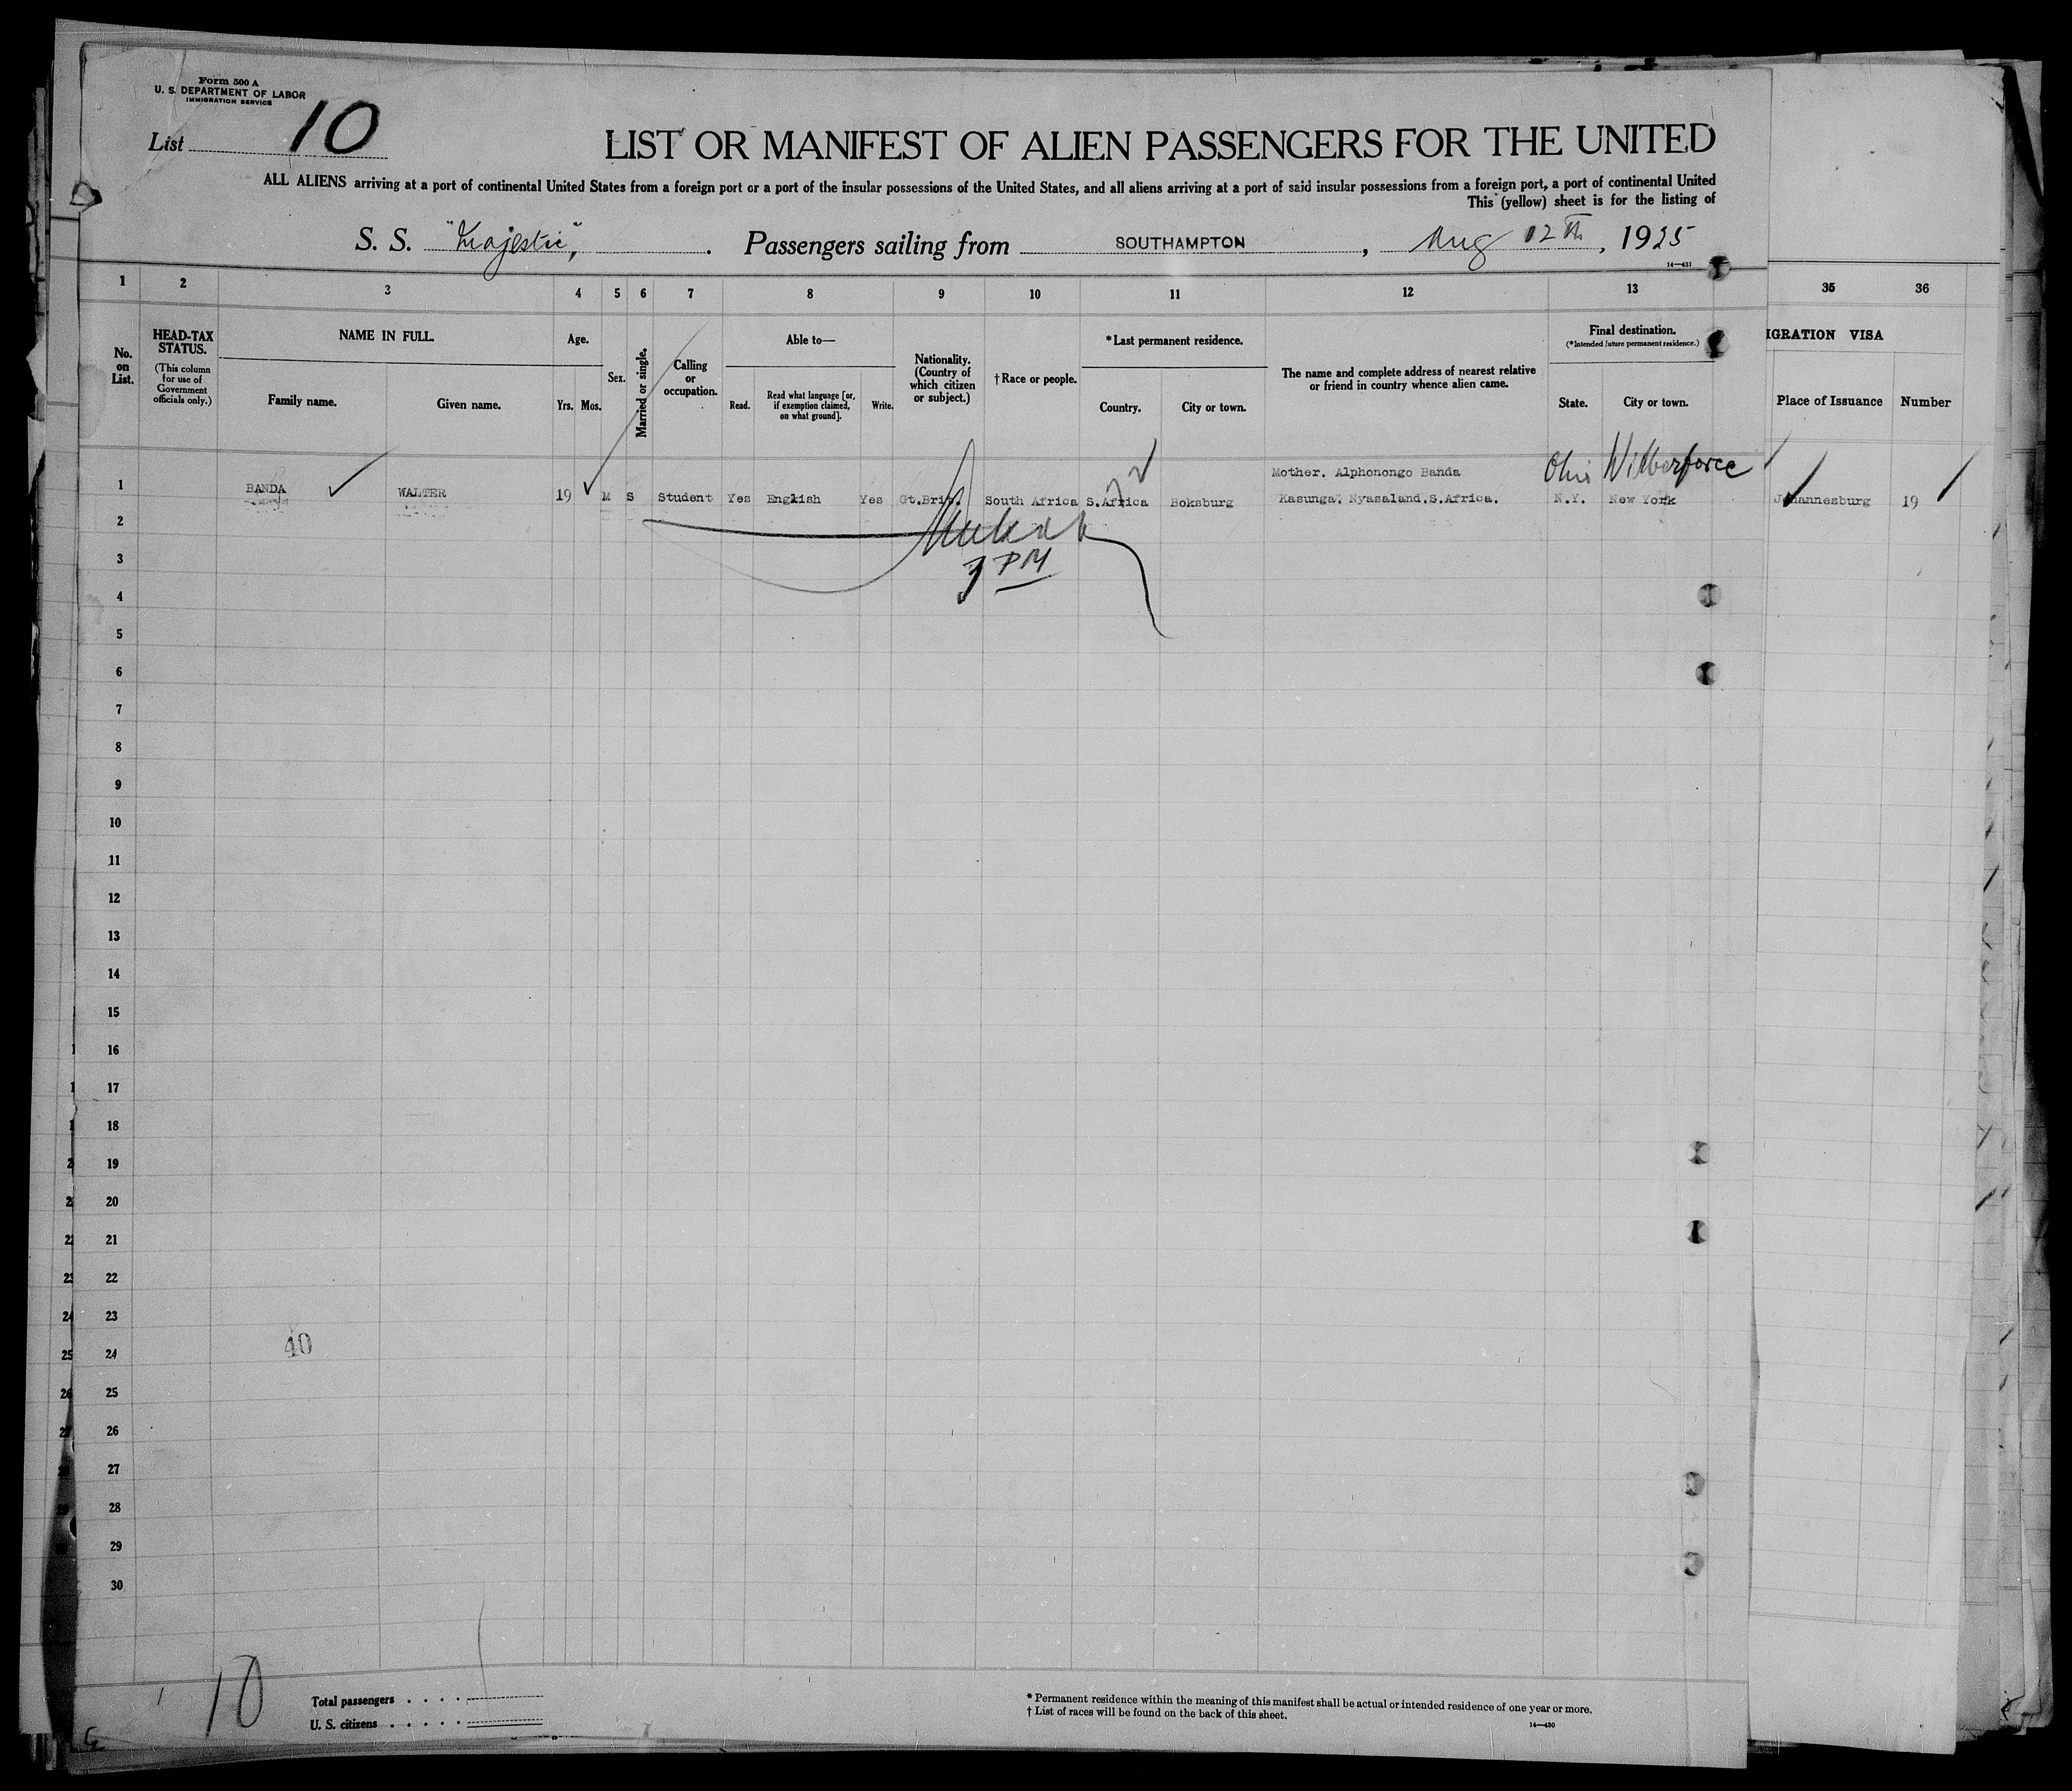 Form 500 A
U. S. DEPARTMENT OF LABOR
IMMIGRATION SERVICE
List 10
LIST OR MANIFEST OF ALIEN PASSENGERS FOR THE UNITED
ALL ALIENS arriving at a port of continental United States from a foreign port or a port of the insular possessions of the United States, and all aliens arriving at a port of said insular possessions from a foreign port, a port of continental United
This (yellow) sheet is for the listing of
S. S. "Majestic", . Passengers sailing from SOUTHAMPTON, Aug 12th, 1925
14—431
1 2 3 4 5 6 7 8 9 10 11 12 13 35 36
No. on List.
HEAD-TAX STATUS.
(This column for use of Government officials only.)
NAME IN FULL.
Family name. Given name.
Age.
Yrs. Mos.
Sex.
Married or single.
Calling or occupation.
Able to—
Read. Read what language [or, if exemption claimed, on what ground]. Write.
Nationality. (Country of which citizen or subject.)
†Race or people.
*Last permanent residence.
Country. City or town.
The name and complete address of nearest relative or friend in country whence alien came.
Final destination.
(*Intended future permanent residence.)
State. City or town.
IGRATION VISA
Place of Issuance Number
Mother. Alphonongo Banda Ohio Wilberforce
1 BANDA WALTER 19 M S Student Yes English Yes Gt.Brit. South Africa S.Africa Boksburg Kasunga. Nyasaland.S.Africa. N.Y. New York Johannesburg 19
2
3 PM
4
5
6
7
8
9
10
11
12
13
14
15
16
17
18
19
20
21
22
23
24 40
25
26
27
28
29
30
10
Total passengers . . . .
U. S. citizens . . . . .
* Permanent residence within the meaning of this manifest shall be actual or intended residence of one year or more.
† List of races will be found on the back of this sheet.
14—430